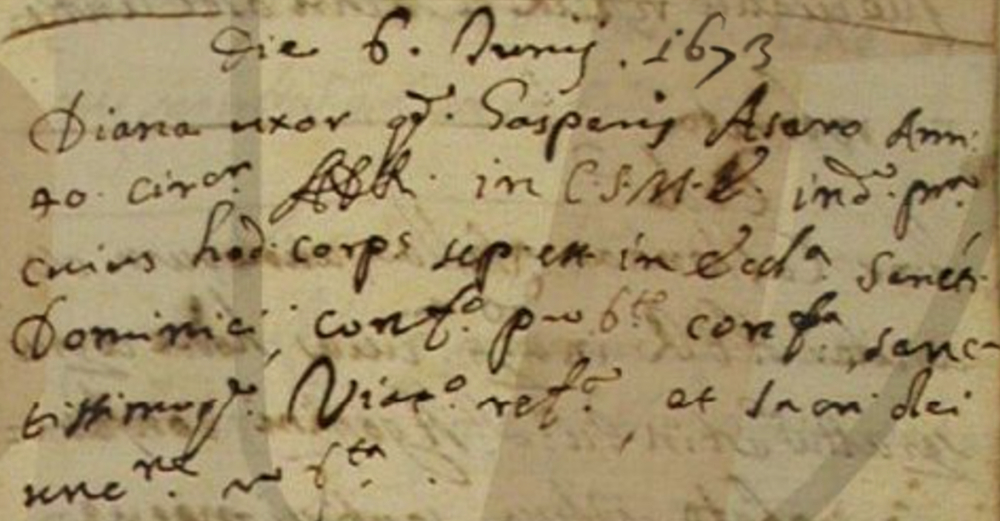 Die 6. Junij. 1673
Diana uxor qd. Gasparis Asaro Ann:
40. circ.r in C.S.M.E. ind. pr.a
cuius hod. corps sep. est in Eccl.a Sancti
Dominici, conf.a p.o conf.a sanc-
tissimoq. Viat.o ref.a et sacri olei
unc.ne